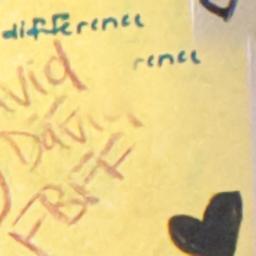 difference
rence
vid
Davi
FBFF